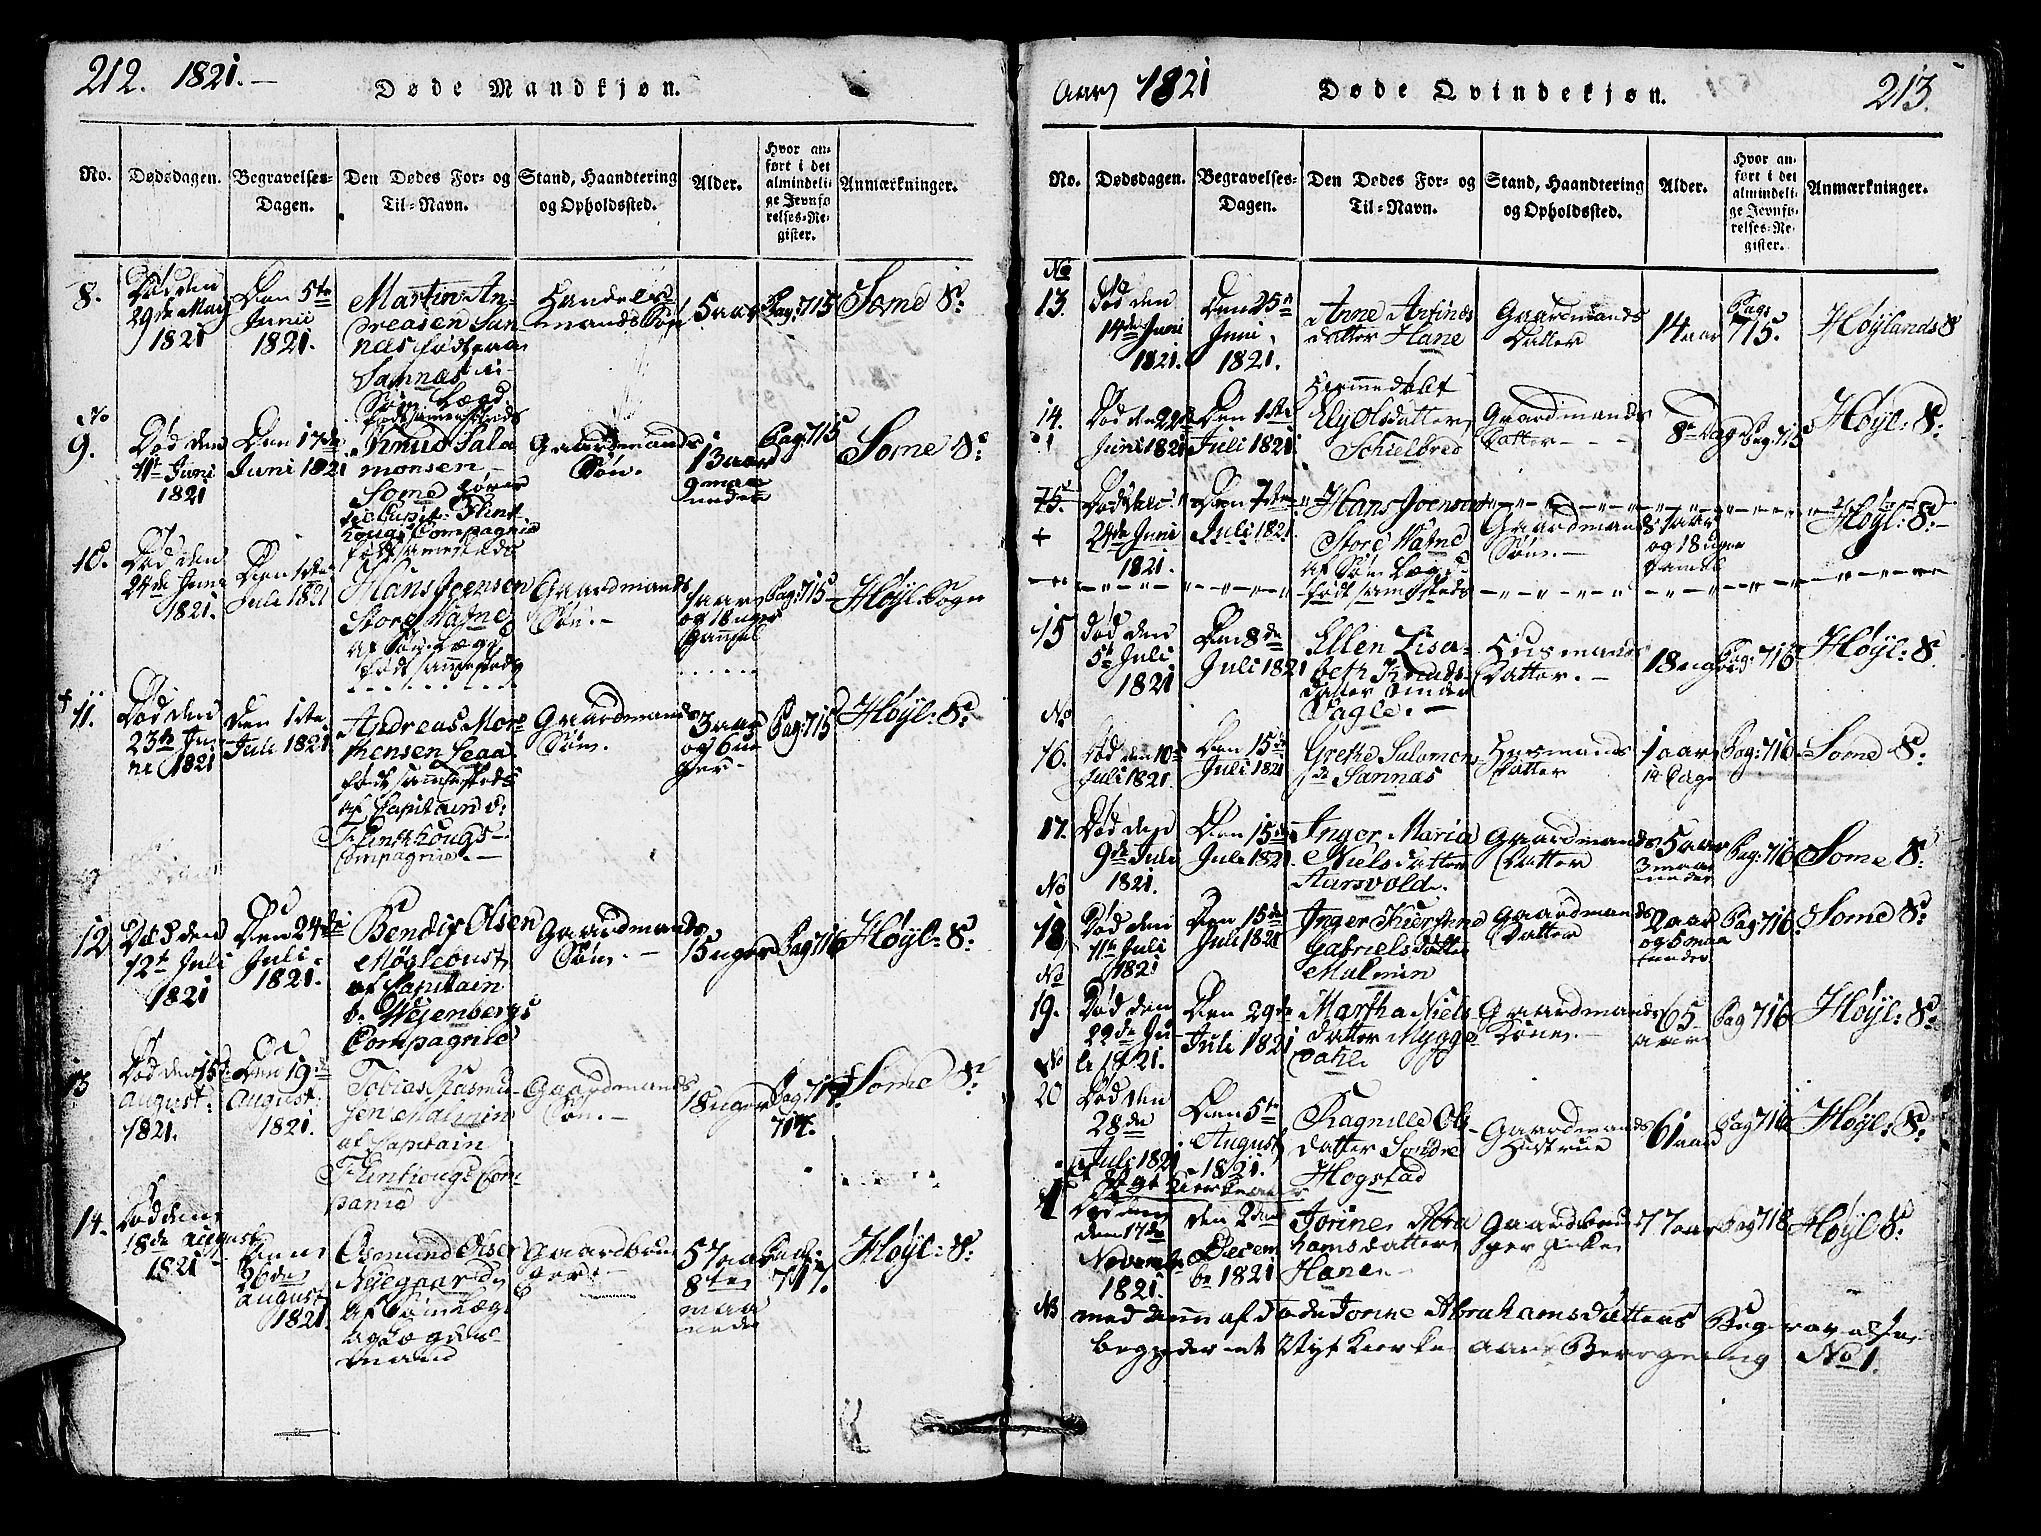 212. 1821.
Døde Mandkjøn.
No.
Dødsdagen.
Begravelses-
Dagen.
Den Dødes For- og
Til-Navn.
Stand, Haandtering
og Opholdssted.
Alder.
Hvor an-
ført i det
almindeli-
ge Jevnfø-
relses-Re-
gister.
Anmærkninger.
8.
Død den
29de May
1821
Den 5te
Junii
1821.
Martin An-
dreasen San-
næs født paa
Sannæs
Handels-
mands Søn
5 aar
Pag: 715
Some S:
No
9.
Død den
11te Juni
1821
Den 17de
Juni 1821
Knud Salo
monsen
Some
Gaardmands
Søn.
13 aar
9 maa
neder
Pag: 715
Some S:
10.
Død den
24de Juni
1821.
Den 1ste
Juli 1821
Hans Joensen
Store Vatne
af Søe Lægd
født sammesteds
Gaardmands
Søn.
1 aar
og 18 uger
gammel
Pag: 715
Høyl: Sogn
11.
Død den
23de Ju-
ni 1821
Den 1ste
Juli 1821.
Andreas Mor-
thensen Leaa-
født sammesteds
af Capitain v:
Flinthougs
Compagnie.
Gaardmands
Søn.
3 aar
og 6 u-
ger
Pag: 715
Høyl: S:
12
Død den
12te Juli
1821
Den 24de
Juli
1821.
Bendix Olsen
af Capitain
v. Wejenbergs
Compagnie
Gaardmands
Søn.
15 uger
Pag 716
Høyl: S:
13
Død den 15de
August:
1821.
Den 19de
August:
1821.
Tobias Rasmu-
sen Malmin
af Captain
Flinthougs Com-
panie
Gaardmands
Søn.
18 uger
Pag 717.
Some S:
14.
Død den
18de August
1821
Den
26de
August
1821.
Osmund Olsen
Nyegaard
af Søe Læg
Gaardbru
ger
57 aar
8te
maa
neder
Pag:
717.
Høyl: S:
Aar 1821
Døde Qvindekjøn.
213.
No.
Dødsdagen.
Begravelses-
Dagen.
Den Dødes For- og
Til-Navn.
Stand, Haandtering
og Opholdssted.
Alder.
Hvor an-
ført i det
almindeli-
ge Jevnfø-
relses-Re-
gister.
Anmærkninger.
No
13.
Død den
14de Juni
1821.
Den 25de
Juni
1821.
Anne Arfinds
datter Hane
Gaardmands
Datter
14 aar
Pag:
715.
Høylands S
14.
Død den 22de
Juni 1821
Den 1ste
Juli 1821
Hiemmedøbt
Ely Olsdatter
Schielbred
Gaardmands
Datter
8te Dage
Pag: 715
Høyl: S:
15.
Død den
24de Juni
1821.
Den 7de
Juli 1821.
Hans Joensen
Store Vatne
af Søe Lægd
født sammesteds
Gaardmands
Søn.
1 aar
og 18 uger
gammel
Høyl: S:
15
Død den
5te Juli
1821
Den 8de
Juli 1821
Ellen Lisa-
beth Knuds-
datter
Vagle.
Huusmands
Datter.
18 uger
Pag: 716
Høyl: S.
No
16.
Død den 10de
Juli 1821.
Den 15de
Juli 1821
Grethe Salomons-
d: Sannæs
Huusmands
Datter
1 aar
14 Dage
Pag: 716
Some S:
17.
Død den
9de Juli
1821.
Den 15de
Juli 1821.
Inger Maria
Nielsdatter
Aarsvold.
Gaardmands
Datter
5 aar
3 maa
neder
Pag: 716
Some S:
No
18
Død den
11te Juli
1821
Den 15de
Juli 1821
Inger Kierstine
Gabrielsdatter
Malmin
Gaardmands
Datter
2 aar
og 5 maa
neder
Pag: 716.
Some S:
No
19.
Død den
22de Ju-
li 1821.
Den 29de
Juli 1821
Martha Niels-
datter Mygge-
dahl
Gaardmands
Kone.
65
aar
Pag 716
Høyl: S:
No
20
Død den
28de
Juli 1821
Den 5te
August
1821.
Ragnille Ols-
datter Søndre
Hogstad
Gaardmands
Hustrue
61 aar
Pag 716
Høyl: S:
Nyt Kierkeaar
1
Død den
den 17de
Novembr
1821.
Den 2den
Decem
br 1821
Jorine Abra
hamsdatter
Hane
Gaardbru
ger
77 aar
Pag 718
Høyl S:
NB
med denne afdøde Jorine Abrahamsdatters Begravelse
begynder et Nyt Kierke aars Beregning No 1.